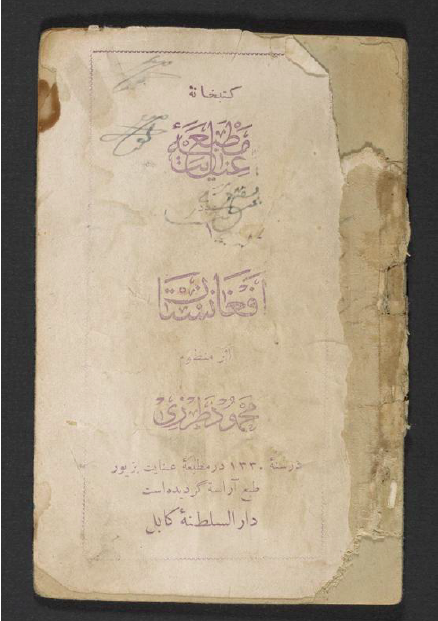 کتبخانهٔ
مطبعهٔ
عنایت
۱
افغانستان
اثر منظوم
محمود طرزی
در سنهٔ ۱۳۳۰ در مطبعهٔ عنایت بزیور
طبع آراسته گردیده است
دار السلطنهٔ کابل